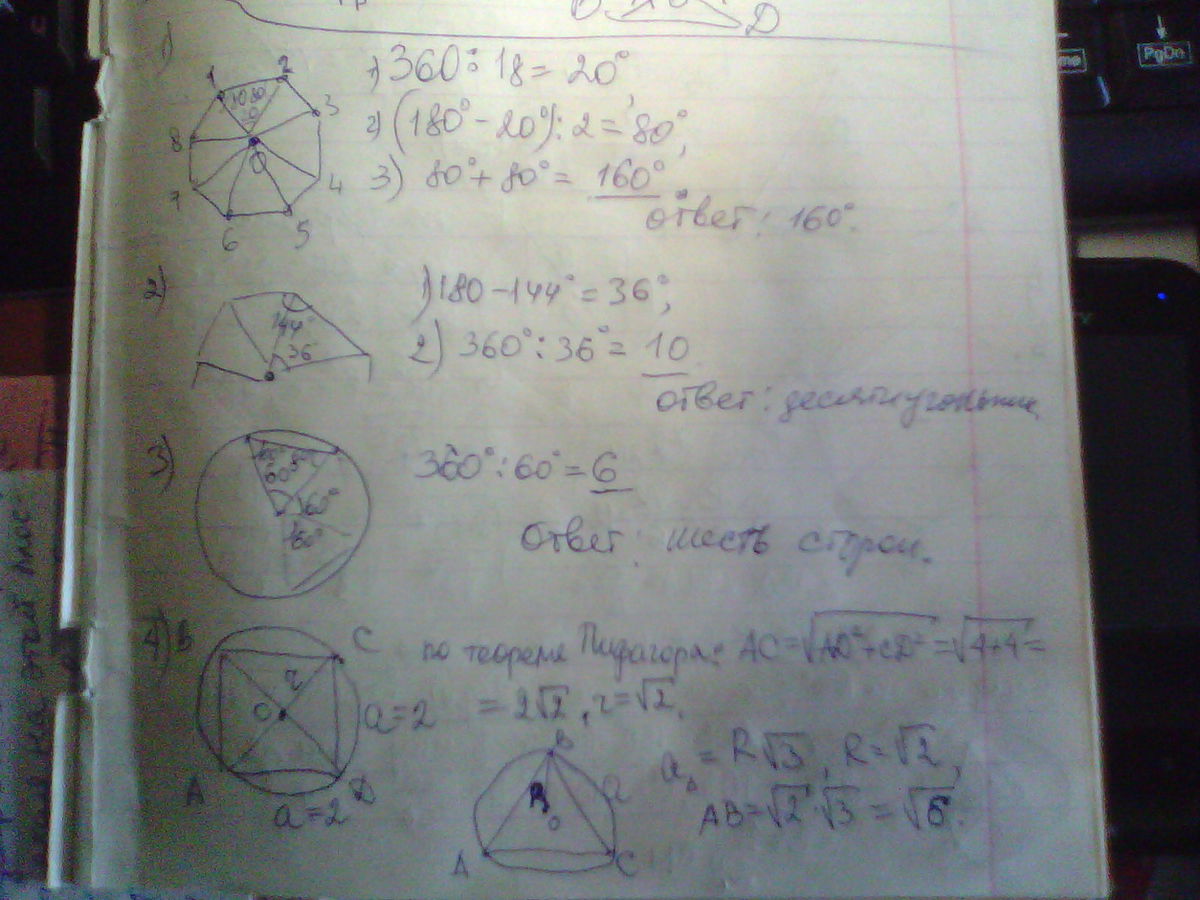 D
PgDn
me
1)
1 2 3 4 5 6 7 8 O
1) 360 : 18 = 20°,
2) (180° - 20°) : 2 = 80°,
3) 80° + 80° = 160°
ответ: 160°.
2)
144°
36
1) 180 - 144° = 36°,
2) 360° : 36° = 10
ответ: десятиугольник.
3)
60
60°
60°
360° : 60° = 6
Ответ: шесть сторон.
4) B C
r
O
A D
a=2
a=2
по теореме Пифагора: AC=√AD²+CD² =√4+4 =
= 2√2, r=√2.
B
R
O
a
A C
a = R√3, R=√2,
AB=√2·√3 = √6.